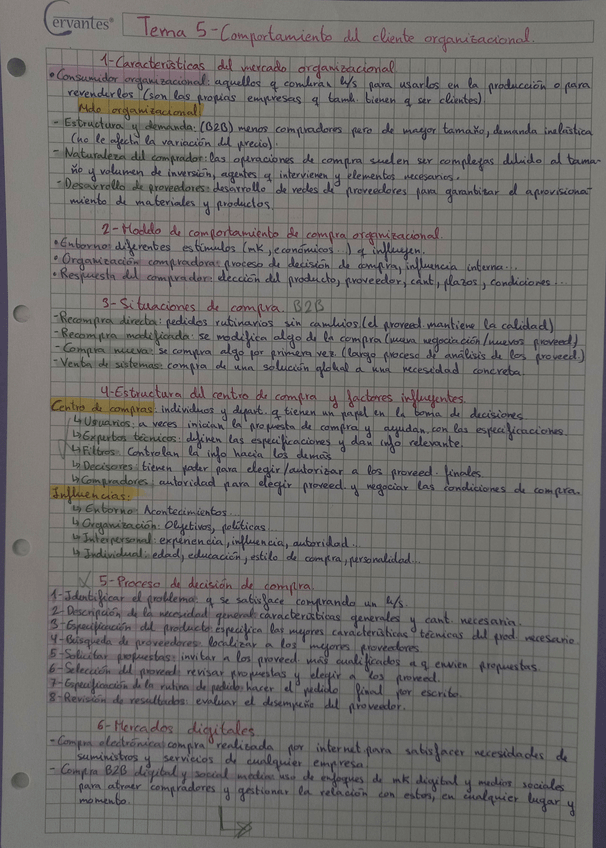 Cervantes®
Tema 5-Comportamiento del cliente organizacional.
1-Características del mercado organizacional
• Consumidor organizacional: aquellos q compran b/s para usarlos en la producción o para
revenderlos (son las propias empresas q tamb. tienen q ser clientes)
Mdo organizacional
- Estructura y demanda: (B2B) menos compradores pero de mayor tamaño, demanda inelástica
(no le afecta la variación del precio).
- Naturaleza del comprador: las operaciones de compra suelen ser complejas debido al tama-
ño y volumen de inversión, agentes q intervienen y elementos necesarios.
- Desarrollo de proveedores: desarrollo de redes de proveedores para garantizar el aprovisiona-
miento de materiales y productos.
2-Modelo de comportamiento de compra organizacional.
• Entorno: diferentes estímulos (mk, económicos...) q influyen.
• Organización compradora: proceso de decisión de compra, influencia interna...
• Respuesta del comprador: elección del producto, proveedor, cant, plazos, condiciones...
3-Situaciones de compra. B2B
- Recompra directa: pedidos rutinarios sin cambios (el proveed. mantiene la calidad)
- Recompra modificada: se modifica algo de la compra (nueva negociación/nuevos proveed)
- Compra nueva: se compra algo por primera vez (largo proceso de análisis de los proveed.)
- Venta de sistemas: compra de una solución global a una necesidad concreta.
4-Estructura del centro de compra y factores influyentes.
Centro de compras: individuos y depart. q tienen un papel en la toma de decisiones
↳ Usuarios: a veces inician la propuesta de compra y ayudan con las especificaciones.
↳ Expertos técnicos: definen las especificaciones y dan info relevante.
↳ Filtros: Controlan la info hacia los demás
↳ Decisores: tienen poder para elegir/autorizar a los proveed. finales.
↳ Compradores: autoridad para elegir proveed. y negociar las condiciones de compra.
Influencias:
↳ Entorno: Acontecimientos...
↳ Organización: Objetivos, políticas...
↳ Interpersonal: experiencia, influencia, autoridad...
↳ Individual: edad, educación, estilo de compra, personalidad...
5-Proceso de decisión de compra.
1-Identificar el problema: q se satisface comprando un b/s.
2-Descripción de la necesidad general: características generales y cant. necesaria.
3-Especificación del producto: especifica las mejores características técnicas del prod. necesario.
4-Búsqueda de proveedores: localizar a los mejores proveedores.
5-Solicitar propuestas: invitar a los proveed. más cualificados a q envíen propuestas.
6-Selección del proveed: revisar propuestas y elegir a los proveed.
7-Especificación de la rutina de pedido: hacer el pedido final por escrito.
8-Revisión de resultados: evaluar el desempeño del proveedor.
6-Mercados digitales
- Compra electrónica: compra realizada por internet para satisfacer necesidades de
suministros y servicios de cualquier empresa.
- Compra B2B digital y social media: uso de enfoques de mk digital y medios sociales
para atraer compradores y gestionar la relación con estos, en cualquier lugar y
momento.